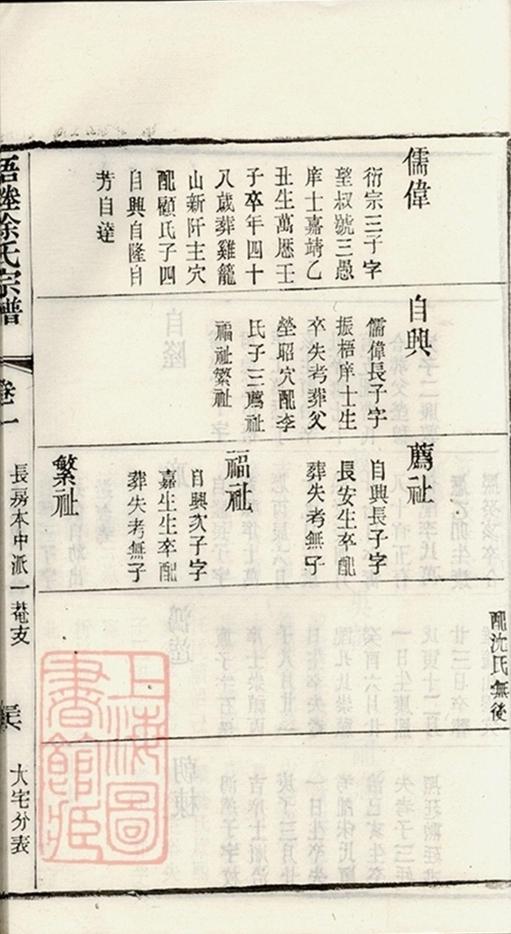 儒偉
衍宗三子字
望叔號三愚
庠士嘉靖乙
丑生萬厯壬
子卒年四十
八歲葬雞籠
山新阡主穴
配顧氏子四
自興自隆自
芳自達
自興
儒偉長子字
振梧庠士生
卒失考葬父
塋昭穴配李
氏子三薦祉
福祉繁祉
薦祉
自興長子字
長安生卒配
葬失考無子
福祉
自興次子字
嘉生生卒配
葬失考無子
繁祉
配沈氏無後
梧塍徐氏宗譜
卷一
長房本中派一菴支
大宅分表
上海圖書館藏